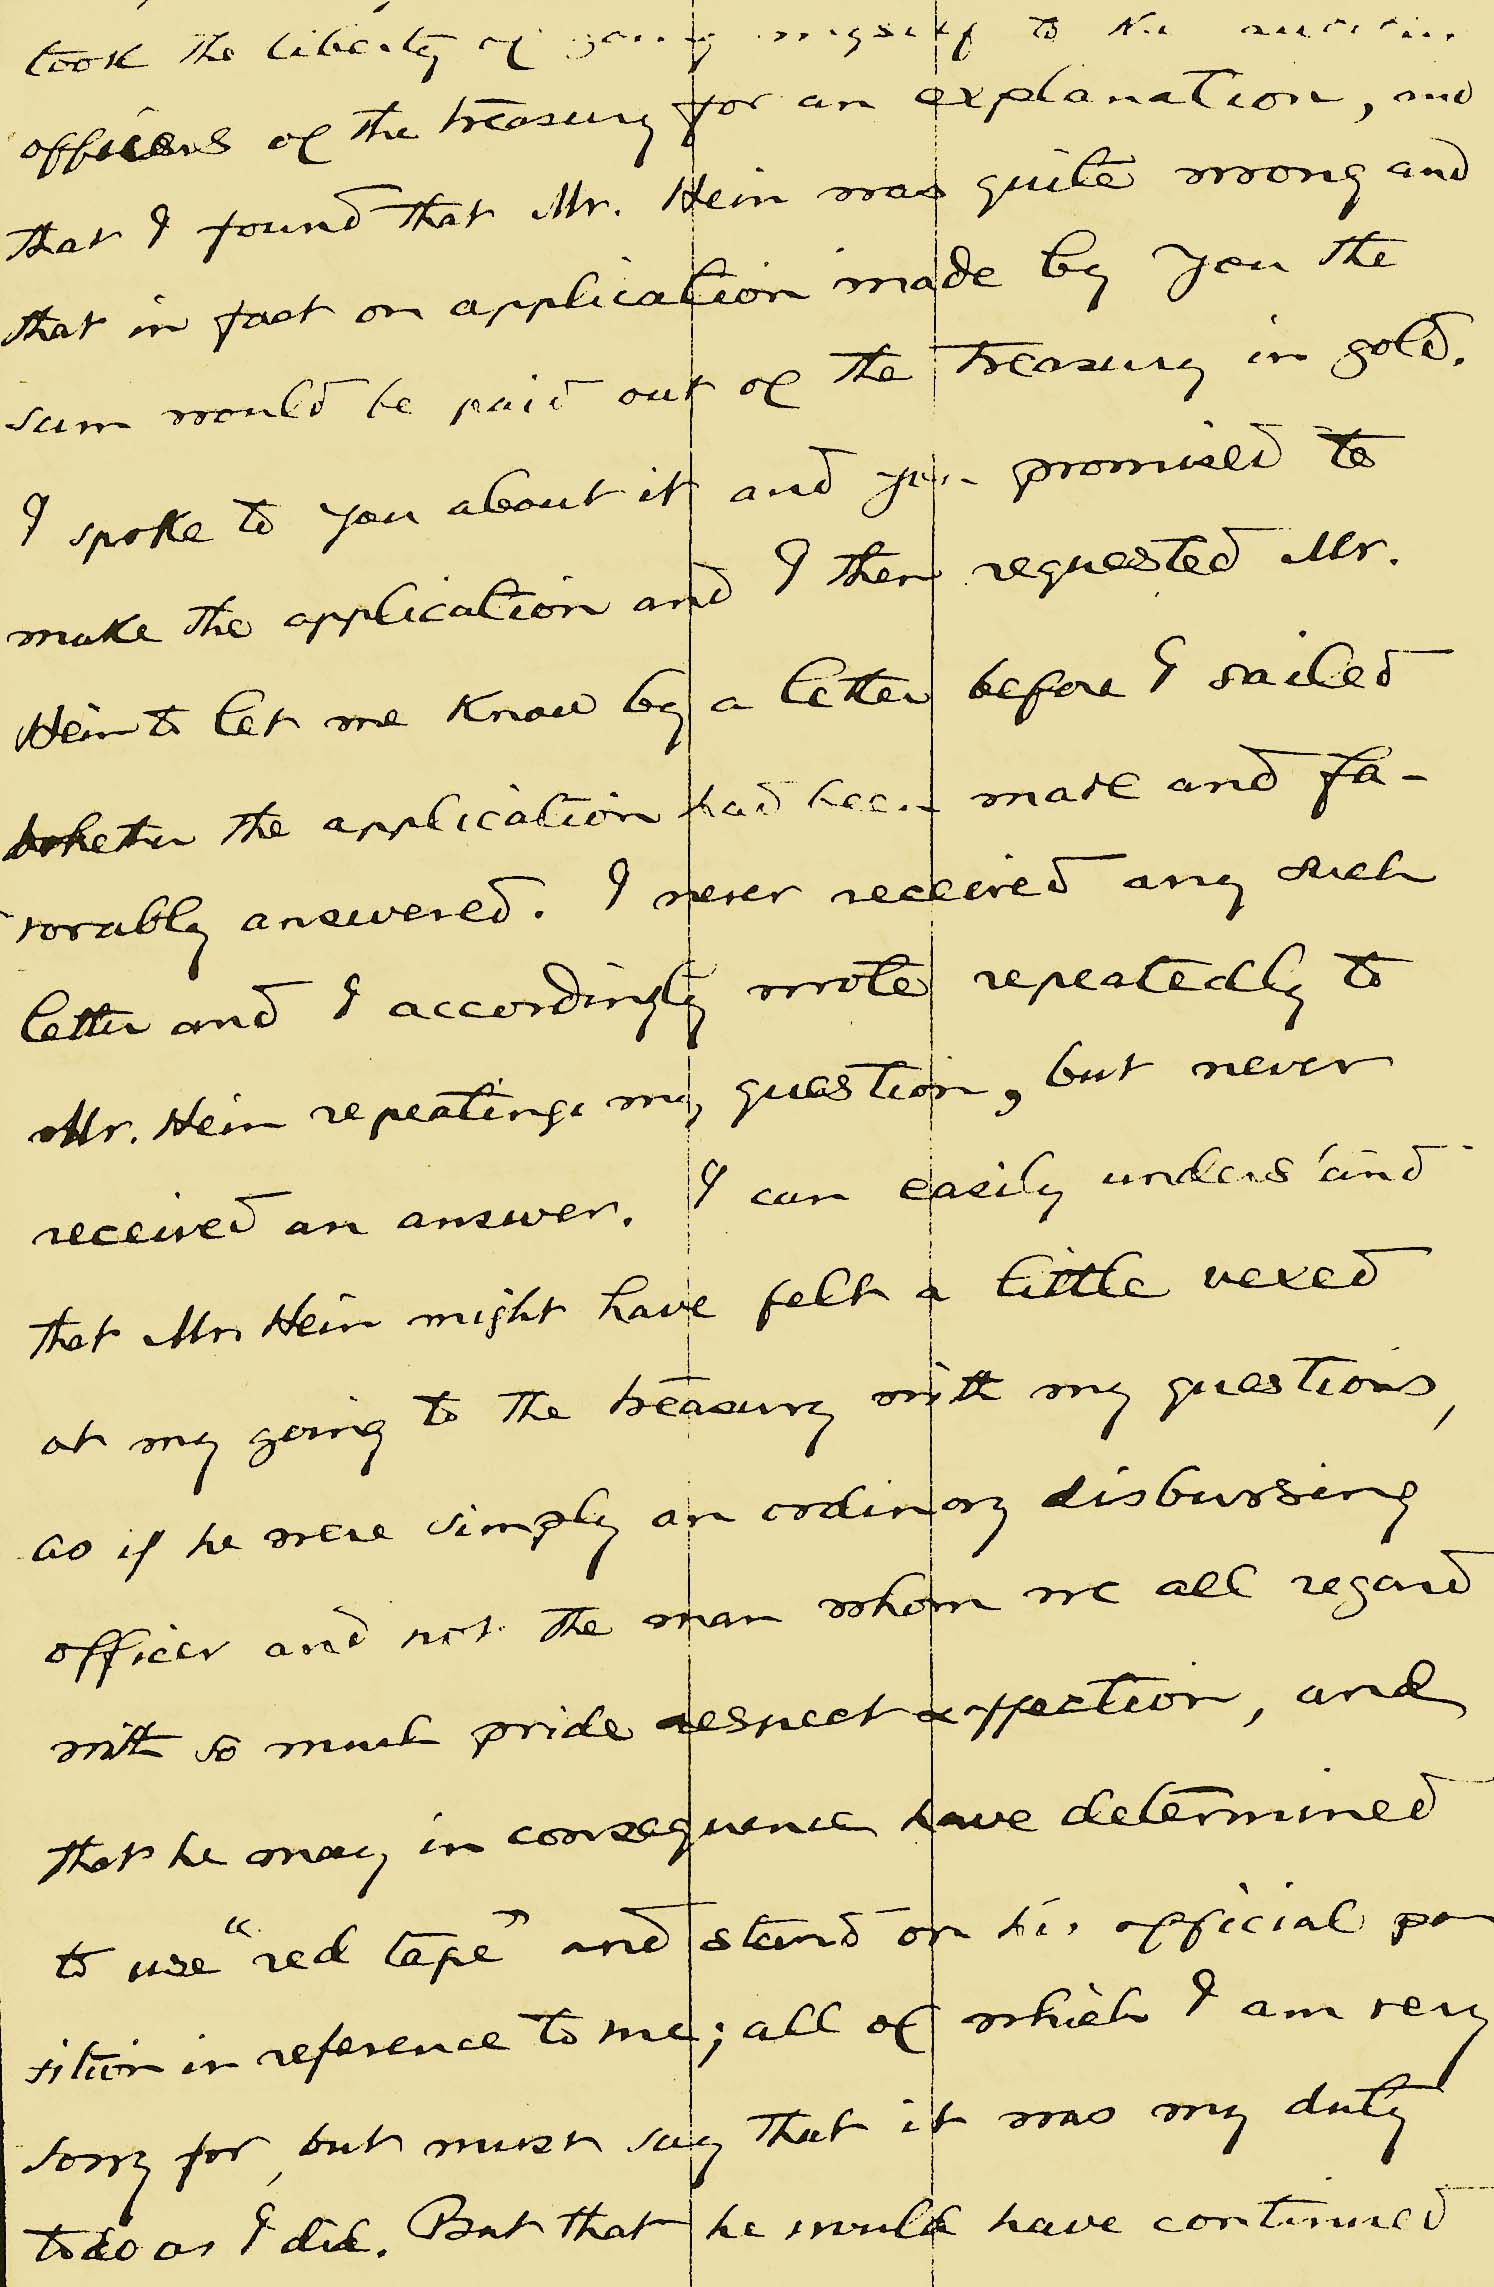 took the liberty of going myself to the
officers of the treasury for an explanation, and
that I found that Mr. Hein was quite wrong and
that in fact on application made by you the
sum would be paid out of the treasury in gold.
I spoke to you about it and you promised to
make the application and I then requested Mr.
Hein to let me know by a letter before I sailed
whether the application had been made and fa-
vorably answered. I never received any such
letter and I accordingly wrote repeatedly to
Mr. Hein repeating my question, but never
received an answer. I can easily understand
that Mr. Hein might have felt a little vexed
at my going to the treasury with my questions,
as if he were simply an ordinary disbursing
officer and not the man whom we all regard
with so much pride respect & affection, and
that he may in consequence have determined
to use "red tape" and stand on his official po
sition in reference to me; all of which I am very
sorry for, but must say that it was my duty
to do as I did. But that he would have continued